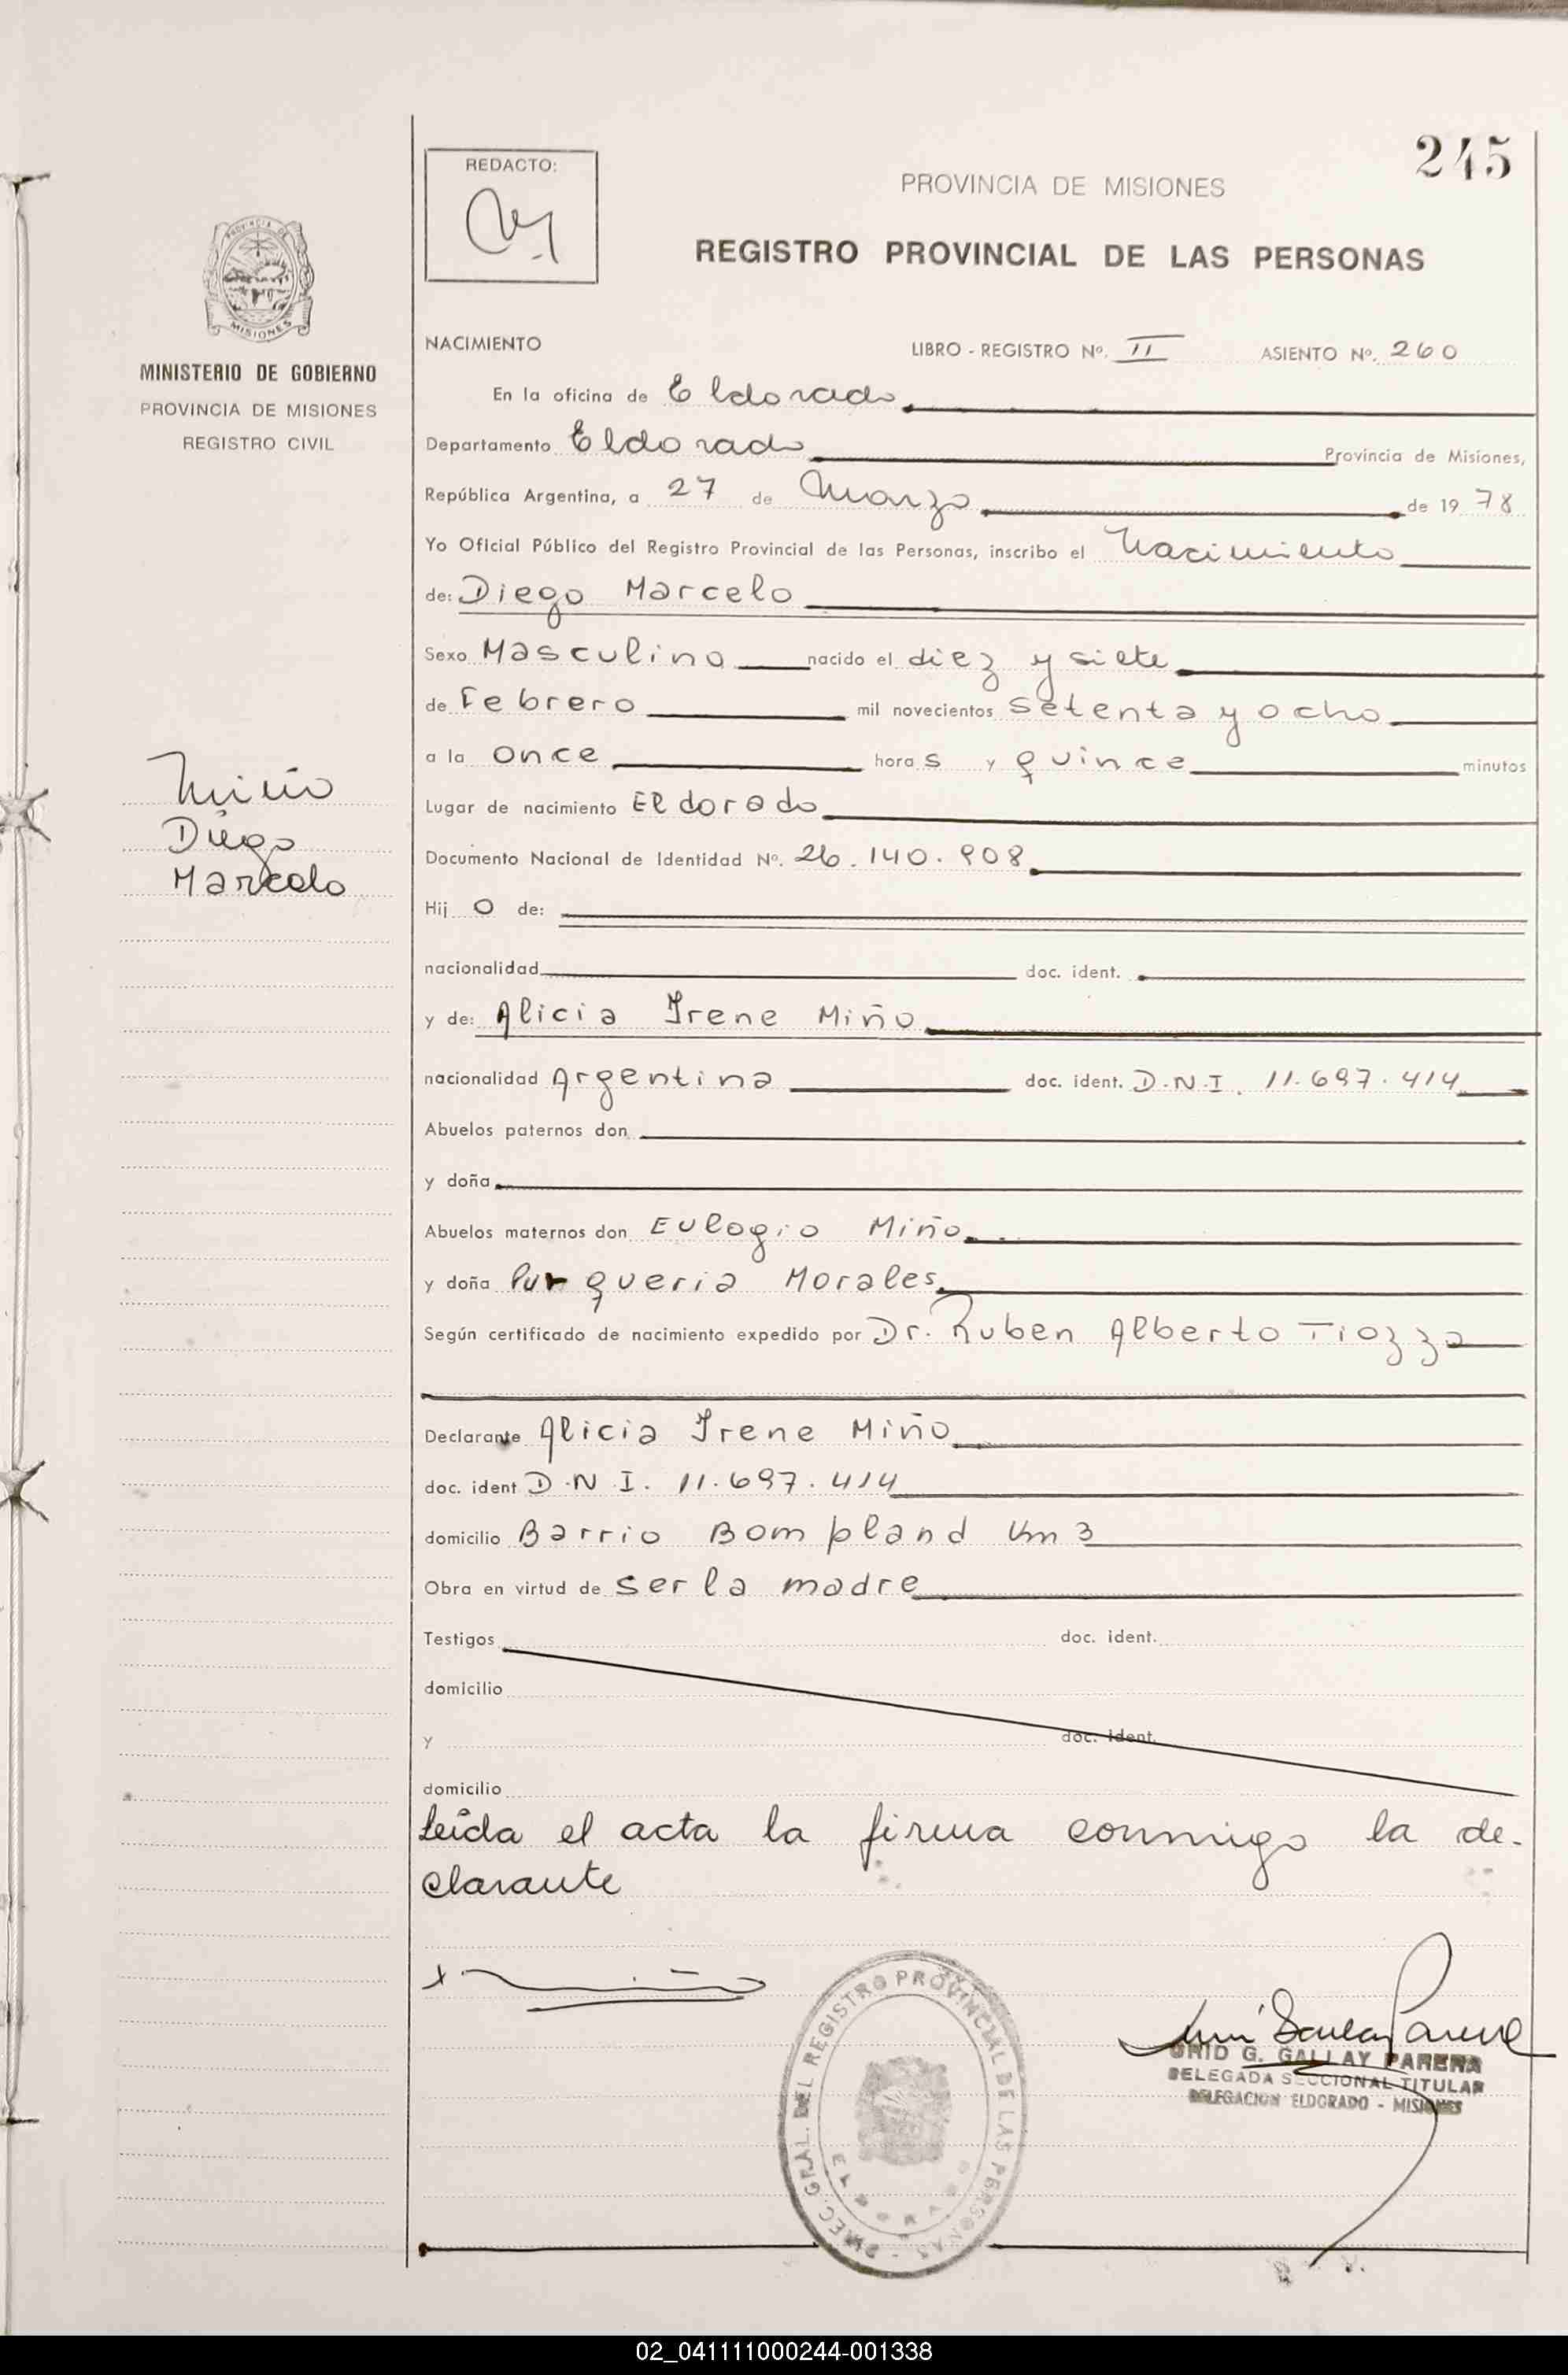 245
REDACTO:
PROVINCIA DE MISIONES
REGISTRO PROVINCIAL DE LAS PERSONAS
MISIONES
MINISTERIO DE GOBIERNO
PROVINCIA DE MISIONES
REGISTRO CIVIL
NACIMIENTO LIBRO - REGISTRO Nº. II ASIENTO Nº. 260
En la oficina de Eldorado
Departamento Eldorado Provincia de Misiones,
República Argentina, a 27 de Marzo de 1978
Yo Oficial Público del Registro Provincial de las Personas, inscribo el Nacimiento
de: Diego Marcelo
Sexo Masculino nacido el diez y siete
de Febrero mil novecientos setenta y ocho
a la once horas y quince minutos
Lugar de nacimiento Eldorado
Documento Nacional de Identidad Nº. 26.140.908
Hijo de:
nacionalidad doc. ident.
y de: Alicia Irene Miño
nacionalidad Argentina doc. ident. D.N.I. 11.697.414
Abuelos paternos don
y doña
Abuelos maternos don Eulogio Miño
y doña Purqueria Morales
Según certificado de nacimiento expedido por Dr. Ruben Alberto Tiozzo
Declarante Alicia Irene Miño
doc. ident D.N.I. 11.697.414
domicilio Barrio Bompland Km 3
Obra en virtud de ser la madre
Testigos doc. ident.
domicilio
y doc. ident.
domicilio
leída el acta la firma conmigo la de-
clarante
Miño
Diego
Marcelo
DIREC. GRAL. DEL REGISTRO PROVINCIAL DE LAS PERSONAS -
ELDORADO
G. GALLAY PARERA
DELEGADA SECCIONAL TITULAR
DELEGACION ELDORADO - MISIONES
02_041111000244-001338